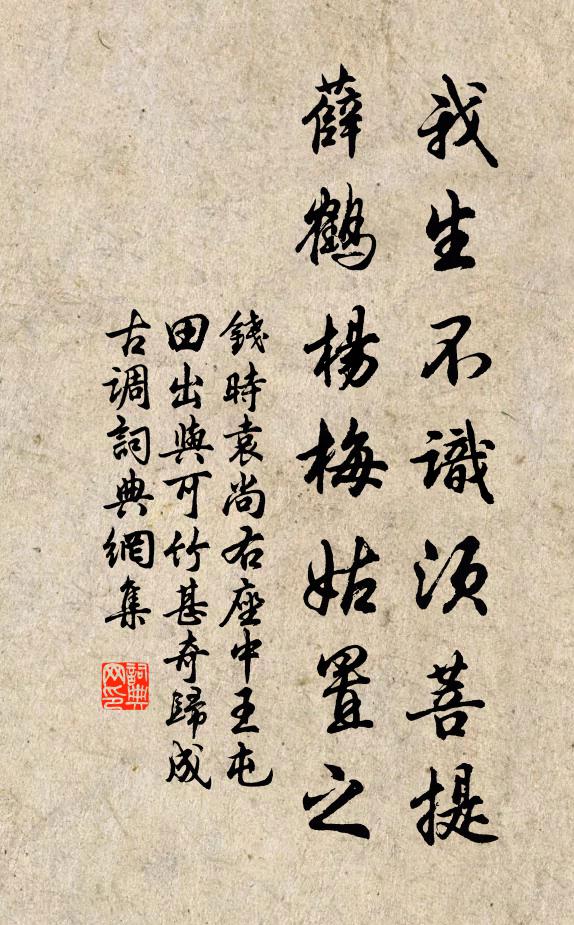 我生不識須菩提
薛鶴楊梅姑置之
錢時袁尚右座中王屯
田出與可竹甚奇歸成
古調詞典網集
詞典
网印